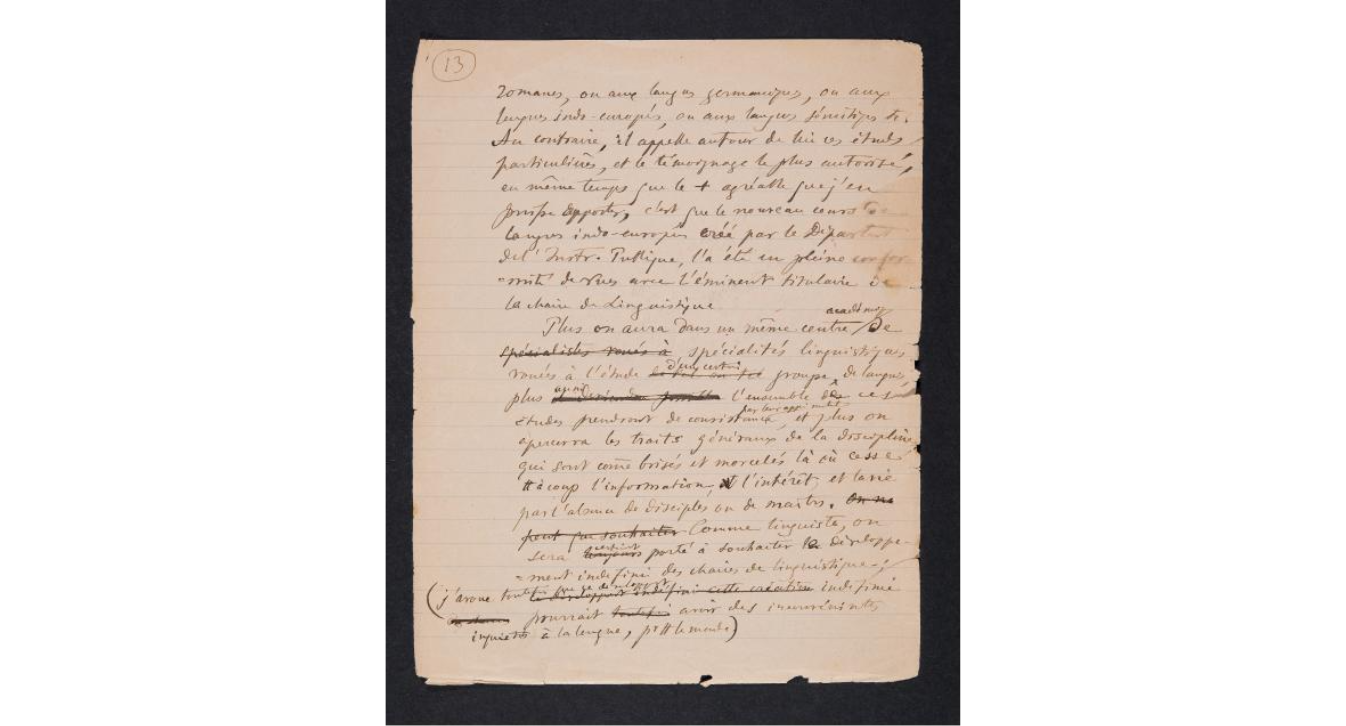 13
romanes, ou aux langues germaniques, ou aux
langues indo-europés, ou aux langues sémitiqes &.
Au contraire, il appelle autour de lui ces études
particulières, et le témoignage le plus autorisé,
en même temps que le + agréable que j'en
puisse apporter, c'est que le nouveau cours de
langues indo-europés créé par le Départent
de l'Instr. Publique, l'a été en pleine confor-
=mité de vues avec l'éminent titulaire de
la chaire de Linguistique
académiq
Plus on aura dans un même centre de
spécialistes voués à spécialités linguistiques
d'un certain
vouées à l'étude groupe de langues,
plus l'ensemble de ces
études prendront de consistance, et plus on
apercevra les traits généraux de la discipline
qui sont come brisés et morcelés là où cesse
tt à coup l'information, et l'intérêt, et la vie
par l'absence de disciples ou de maîtres. On ne
peut que souhaiter Comme linguiste, on
sera toujours porté à souhaiter le développe-
=ment indéfini des chaires de linguistique;
(j'avoue indéfini cette création indéfinie
pourrait toutefois avoir des inconvénients
à la longue, pr tt le monde)